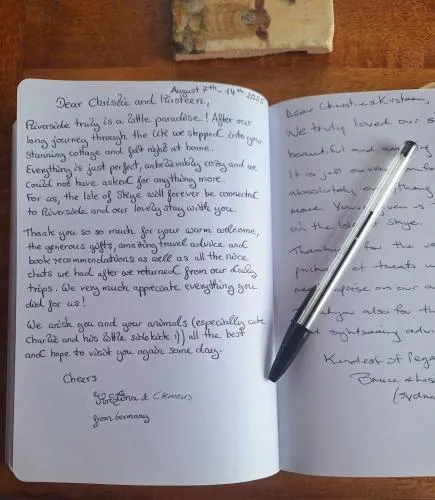 August 7th - 14th 2025
Dear Christie and Kirsteen,
Riverside truly is a little paradise! After our
long journey through the UK we stepped into your
stunning cottage and felt right at home.
Everything is just perfect, unbelievably cozy and we
could not have asked for anything more.
For us, the Isle of Skye will forever be connected
to Riverside and our lovely stay with you.
Thank you so so much for your warm welcome,
the generous gifts, amazing travel advice and
book recommendations as well as all the nice
chats we had after we returned from our daily
trips. We very much appreciate everything you
did for us!
We wish you and your animals (especially cute
Charlie and his little sidekick :)) all the best
and hope to visit you again some day.
Cheers
& Clemens
from Germany
Dear Christine & Kirsteen,
We truly loved our s
beautiful and
It is just
absolutely
more.
on the Isle of Skye.
for the
of treats
on our a
also for th
sightseeing advi
Kindest of Rega
Bruce & Lis
(Sydn